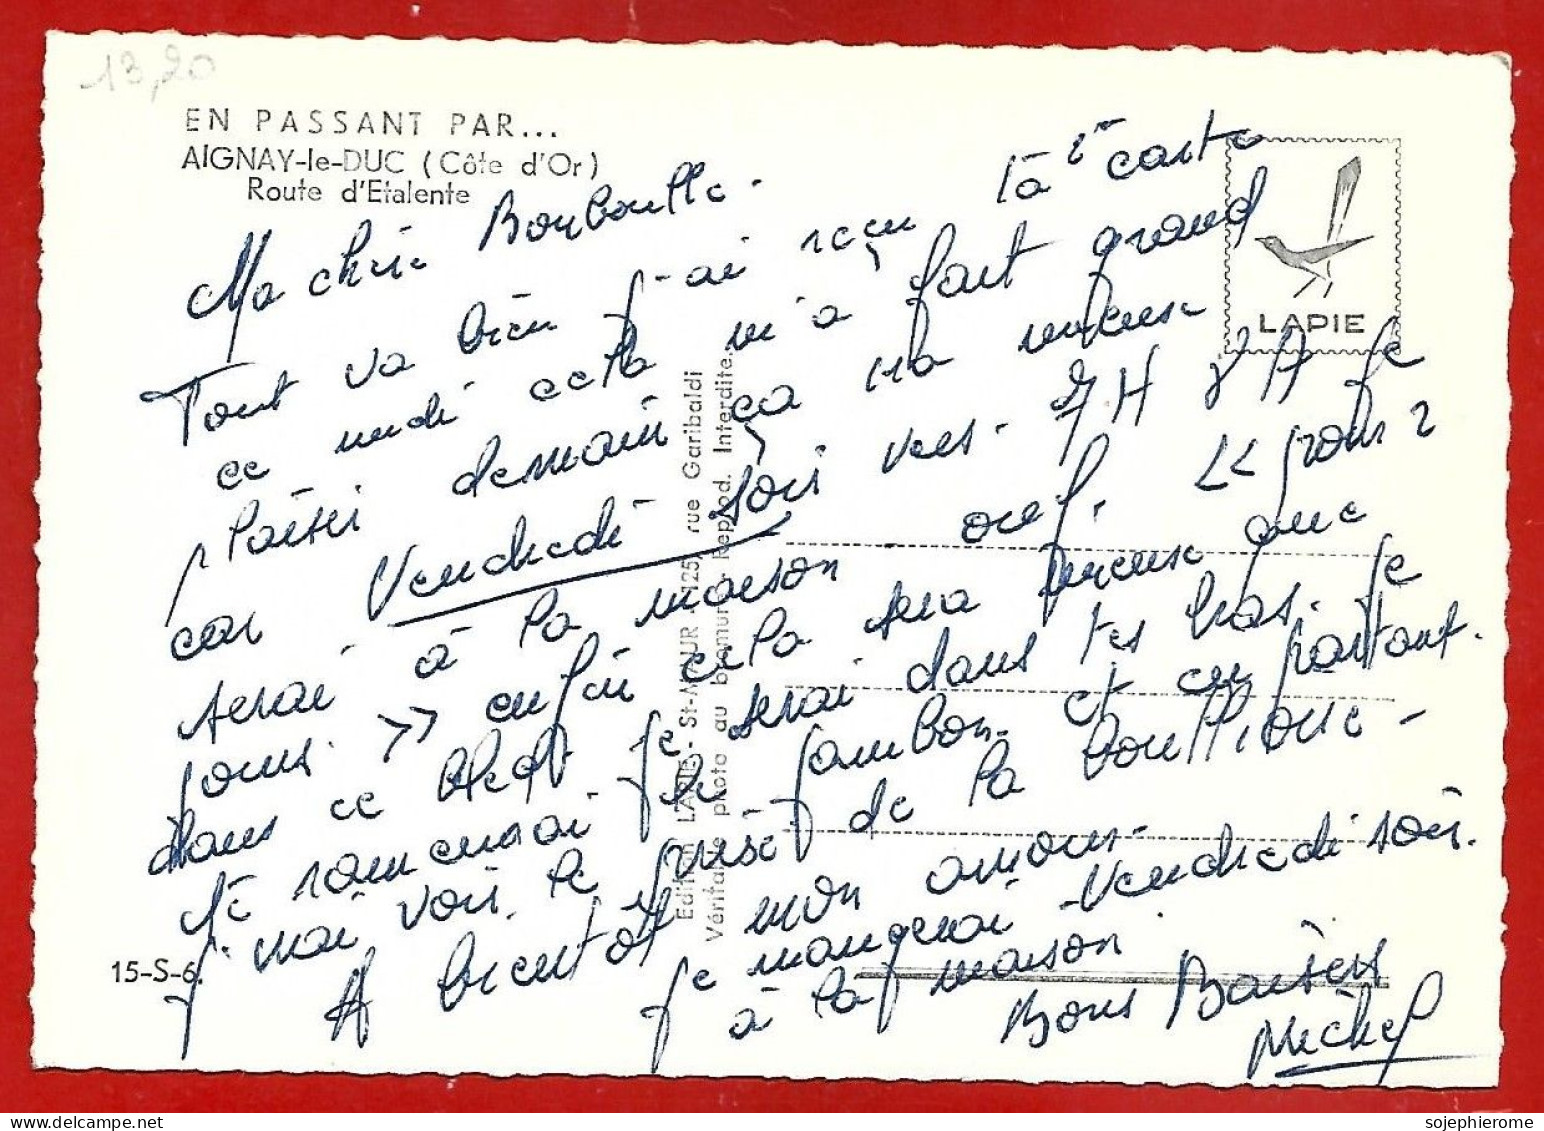 13,20
EN PASSANT PAR...
AIGNAY-le-DUC (Côte d'Or)
Route d'Etalente
LAPIE
Ma chérie
Tout va bien j'ai reçu ta 2e carte
ce midi cela m'a fait grand
plaisir demain ça ira mieux
car Vendredi soir vers 7H 8H je
serai à la maison ouf. << pour 2
jours >> enfin cela sera mieux que
dans ce bled je serai dans tes bras. je
te ramenerai du jambon. et en partant.
j'irai voir le de la
A bientôt mon amour.
Je mangerai Vendredi soir.
à la maison
Bons Baisers
Michel
15-S-6.
Edition LAPIE - St-MAUR 125, rue Garibaldi
Véritable photo au bromure. Reprod. Interdite.
sojephierome